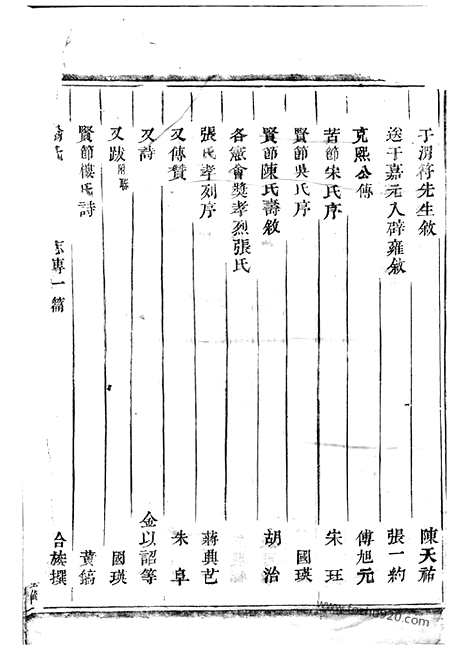 于渭符先生敘 陳天祐
送于嘉元入辟雍敘 張一約
克熙公傳 傅旭元
苦節宋氏序 朱玨
賢節吳氏序 國瑛
賢節陳氏壽敘 胡治
各憲會獎孝烈張氏
張氏孝列序 蔣典芑
又傳贊 朱阜
又詩 金以詔等
又跋附聯 國瑛
賢節樓氏詩 黃鎬
專一篇 合族撰